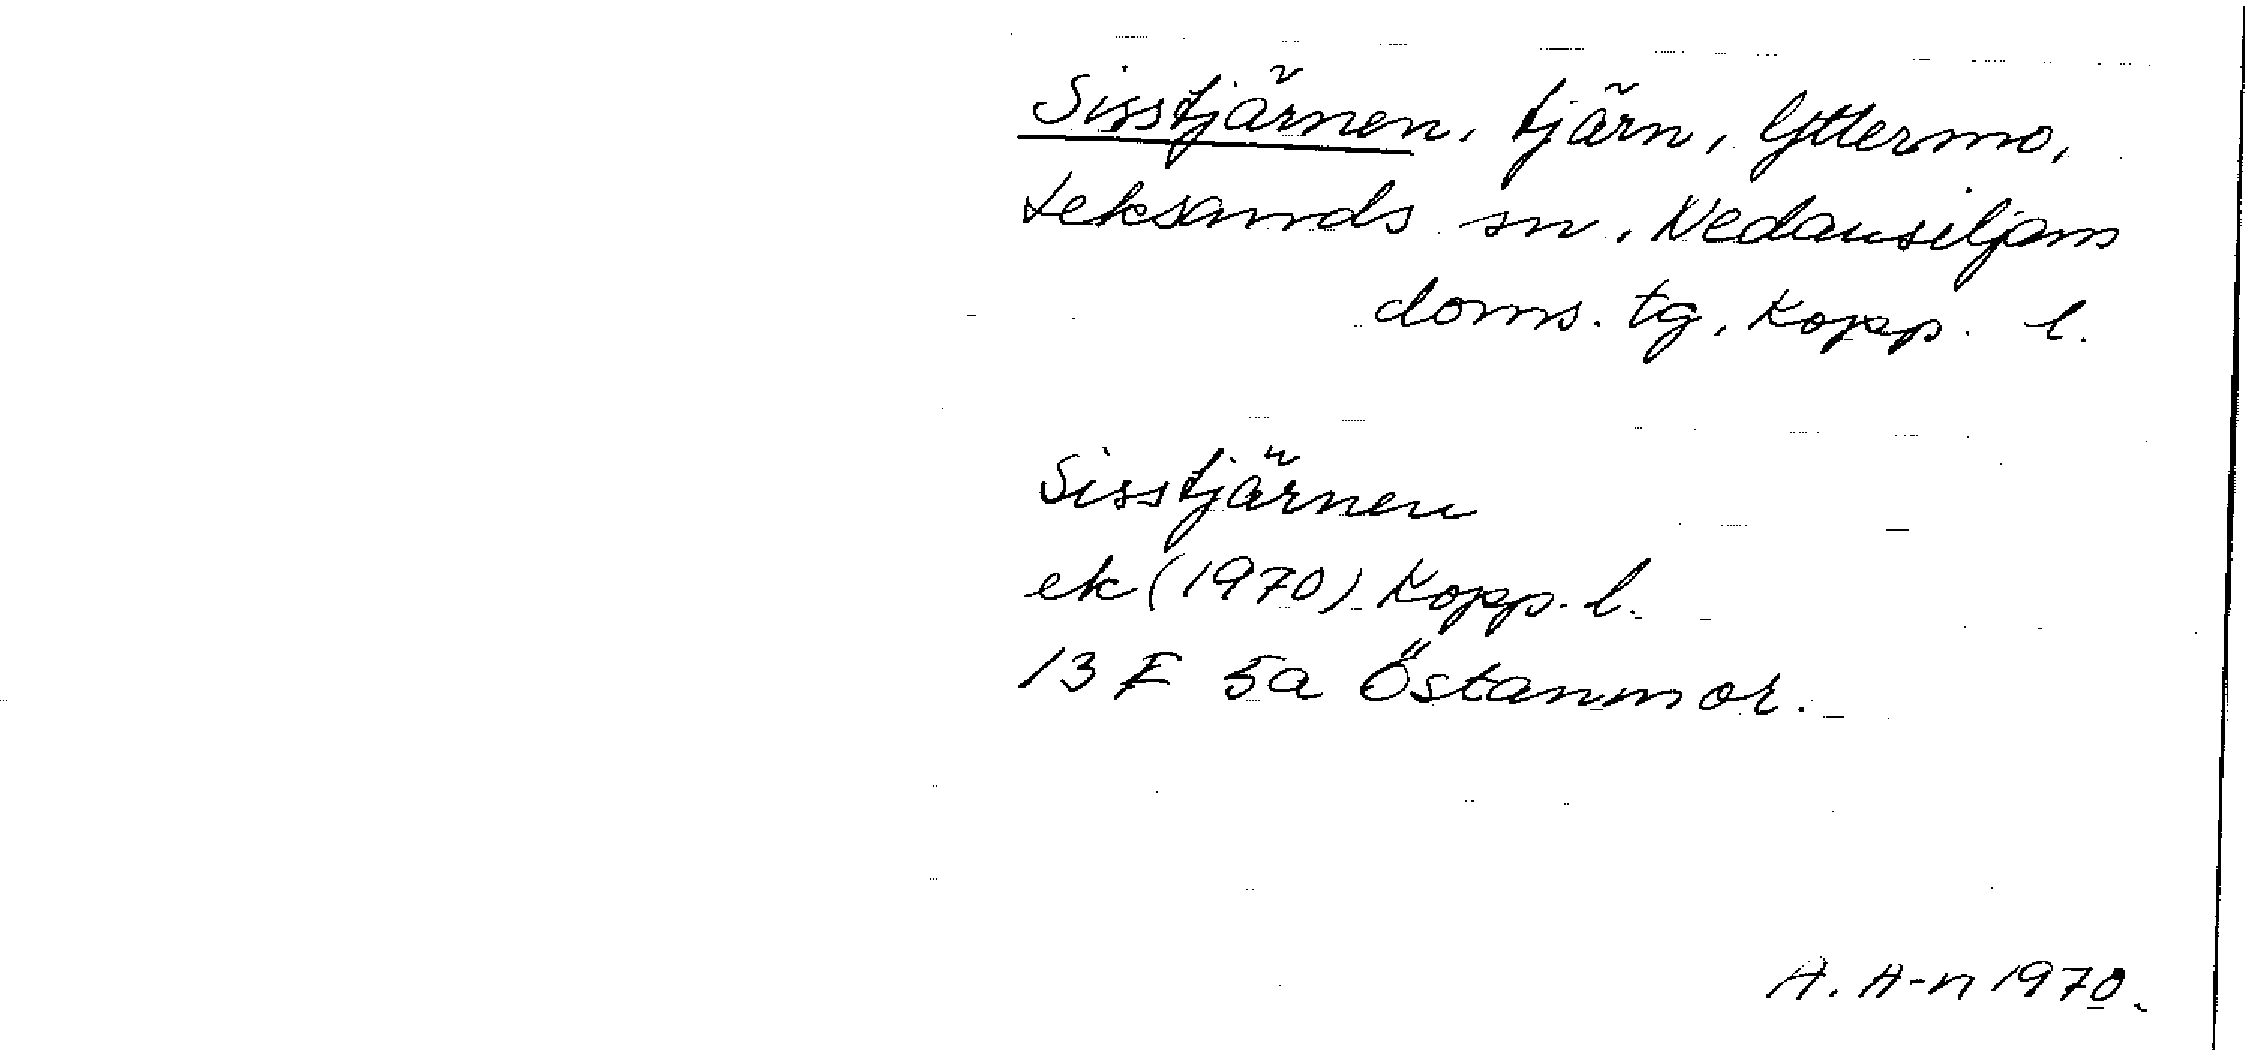 Sisstjärnen, tjärn, Yttermo,
Leksands sn, Nedansiljans
doms. tg, Kopp. l.
Sisstjärnen
ek (1970) Kopp. l.
13 F 5a Östanmor.
A. A-n 1970.